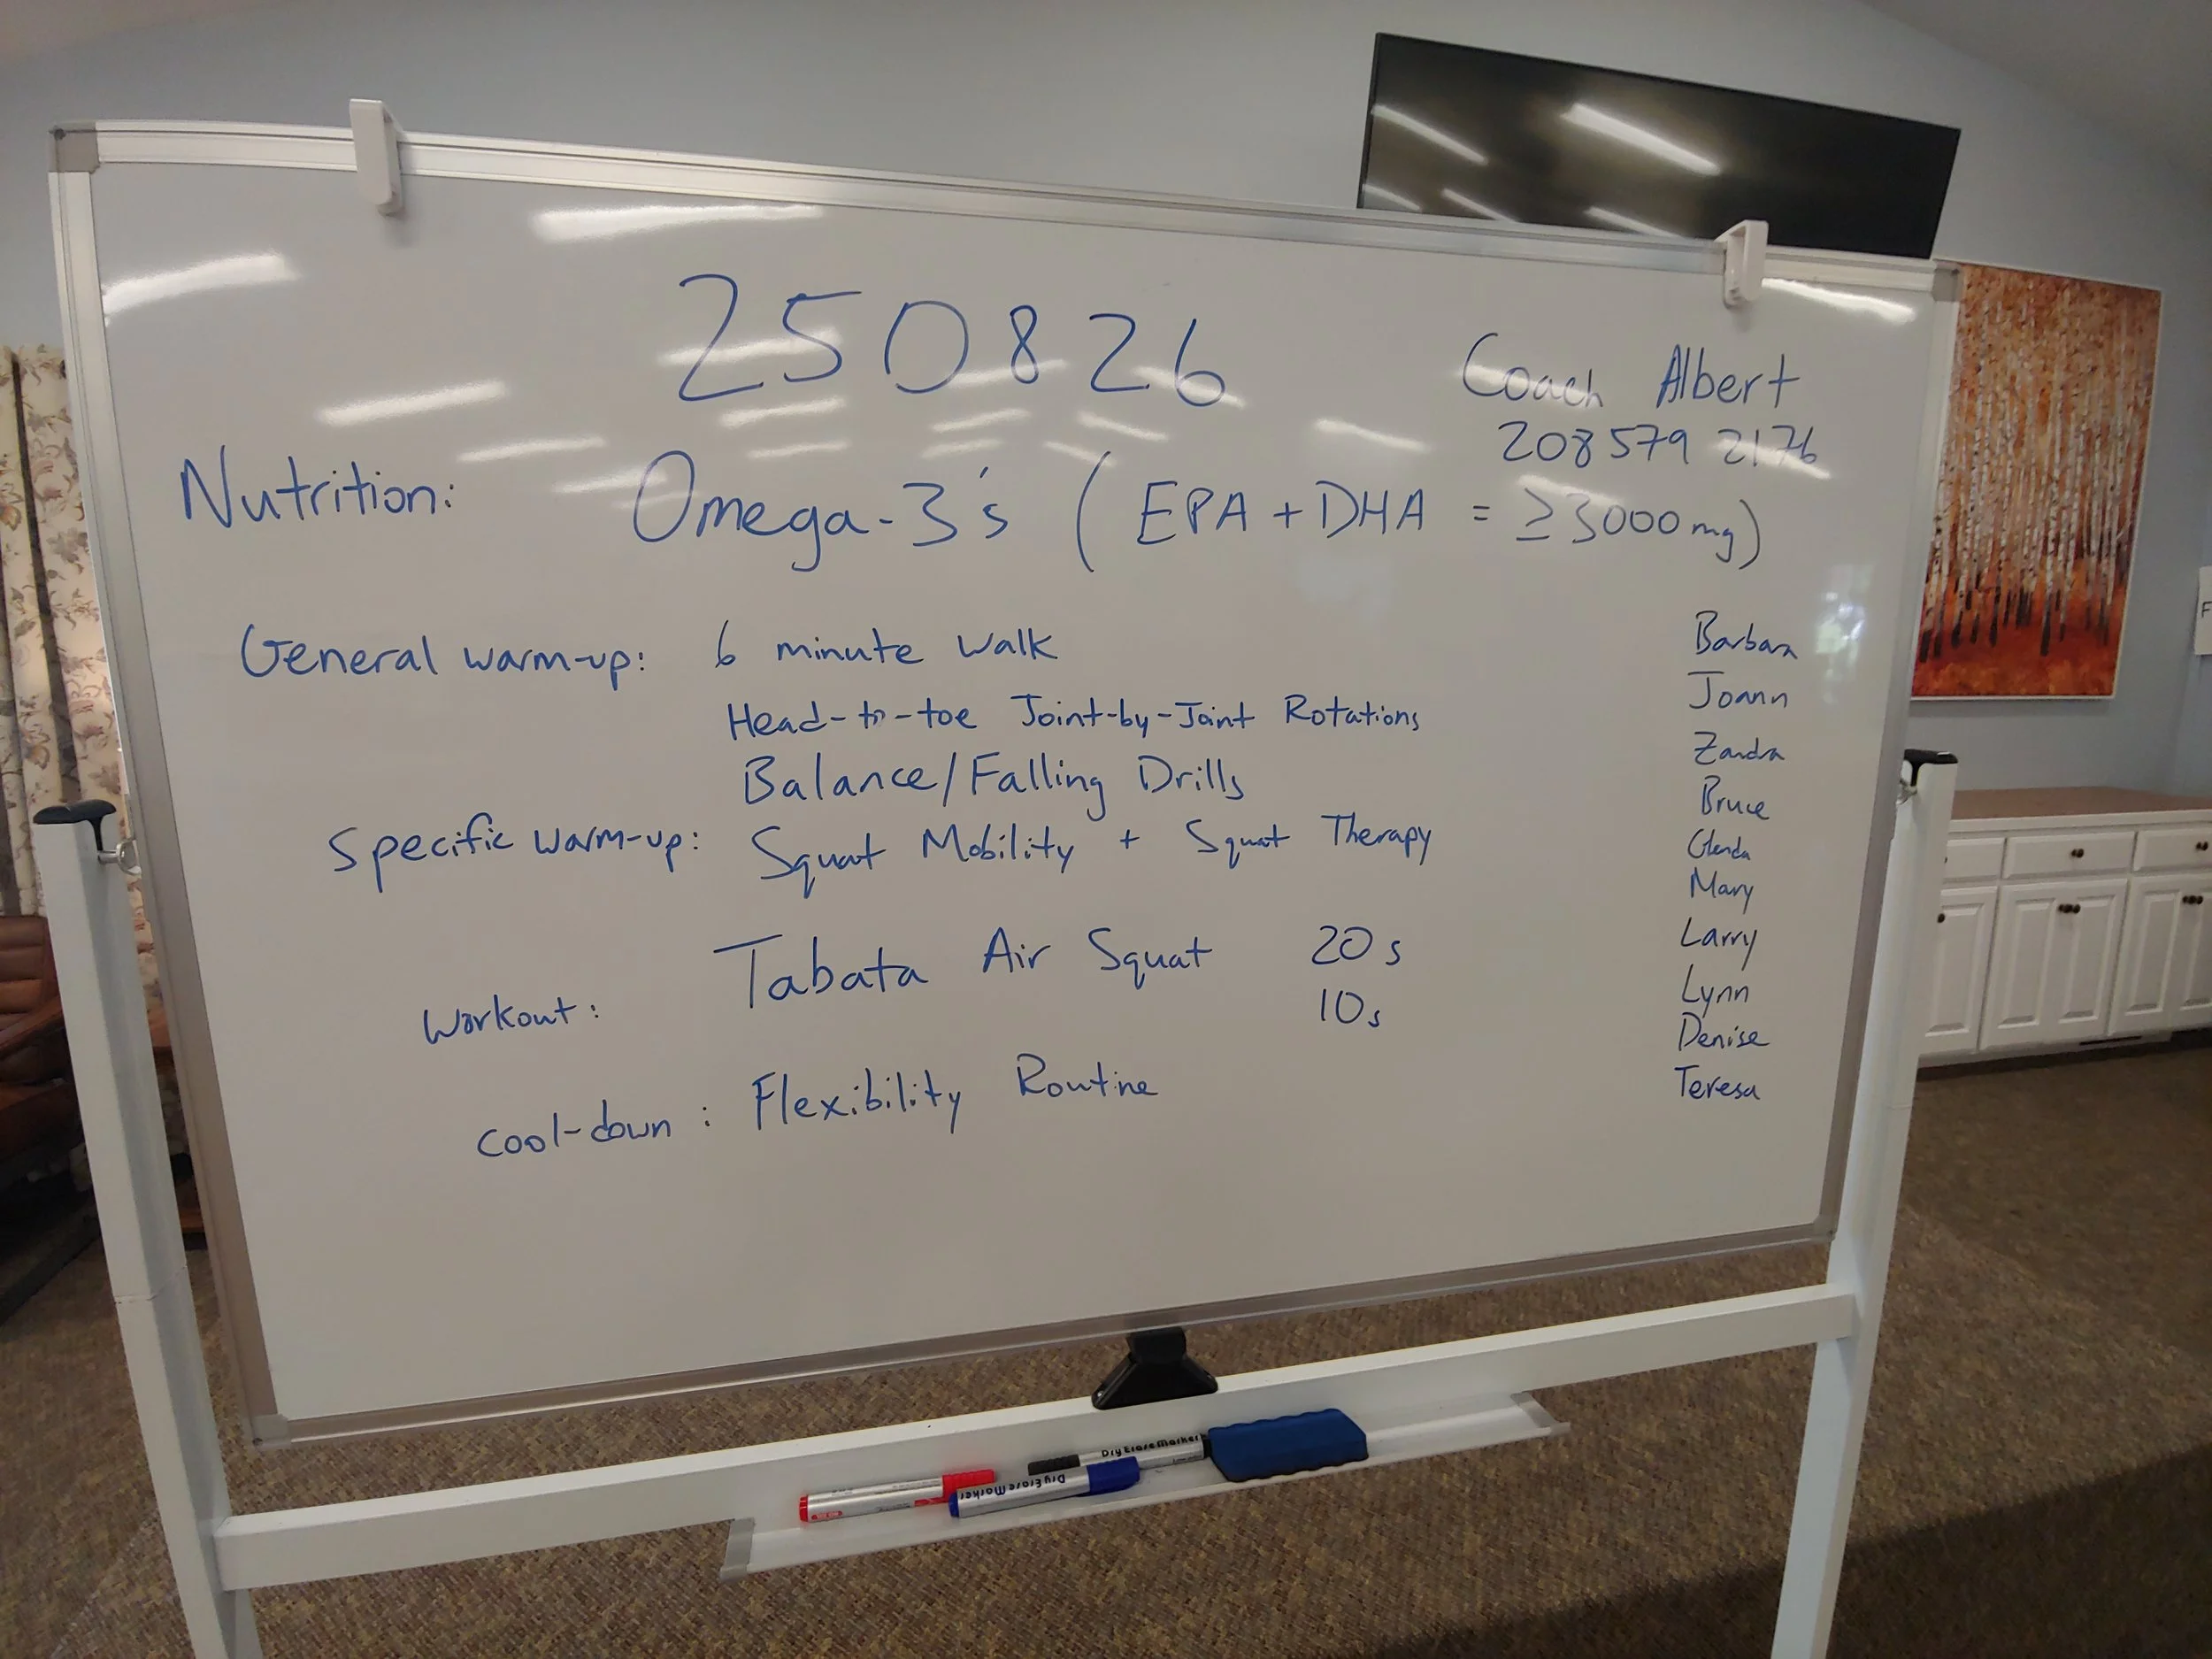 250826
Coach Albert
208 579 2176
Nutrition: Omega-3's (EPA + DHA = ≥3000mg)
General warm-up: 6 minute walk
Head-to-toe Joint-by-Joint Rotations
Balance/Falling Drills
Specific warm-up: Squat Mobility + Squat Therapy
Workout: Tabata Air Squat 20s
10s
Cool-down: Flexibility Routine
Barbara
Joann
Zandra
Bruce
Glenda
Mary
Larry
Lynn
Denise
Teresa
Dry Erase Marker
Dry Erase Marker
F